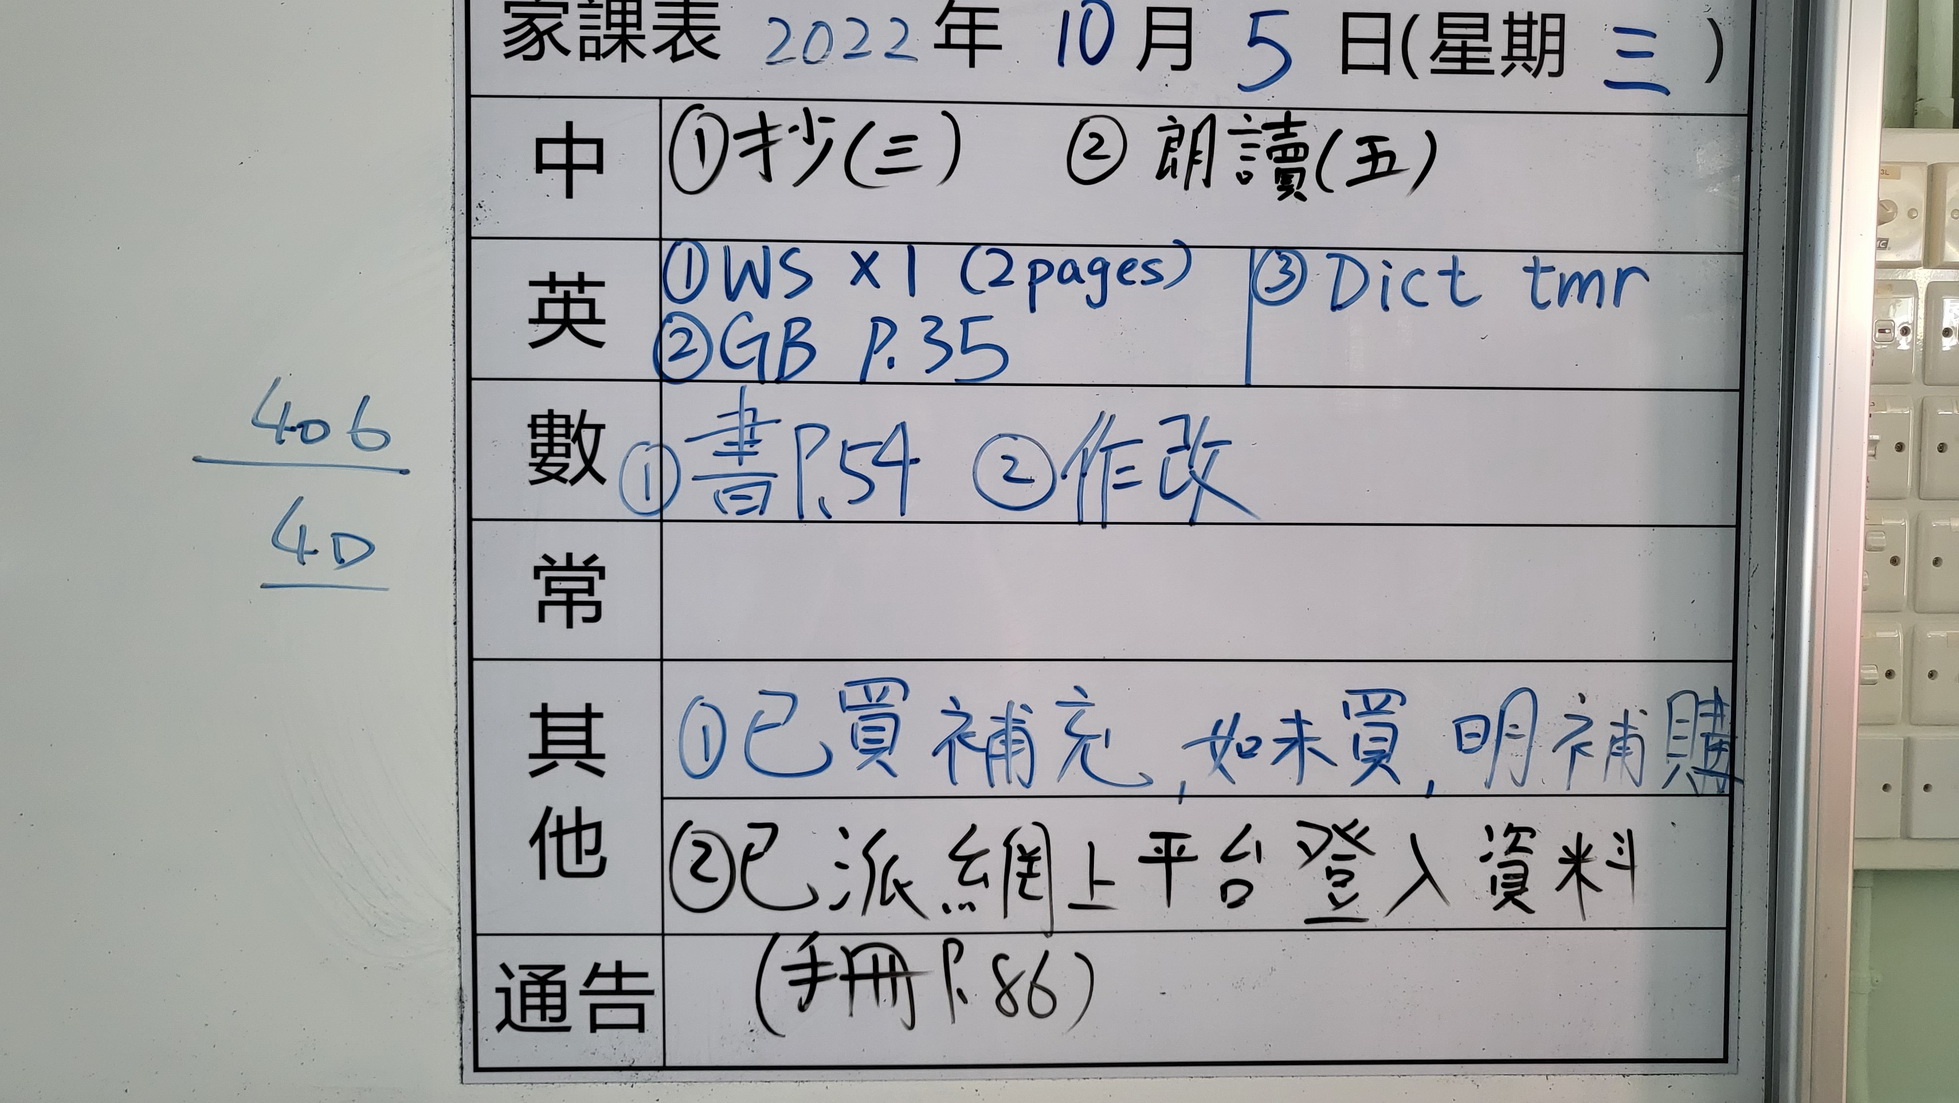 家課表 2022年 10月 5日(星期 三)
中 ①抄(三) ②朗讀(五)
英 ①WS x1 (2pages) ③Dict tmr
②GB P.35
406
4D
數 ①書P.54 ②作改
常
其他 ①已買補充,如未買,明補購
②已派網上平台登入資料
通告 (手冊P.86)